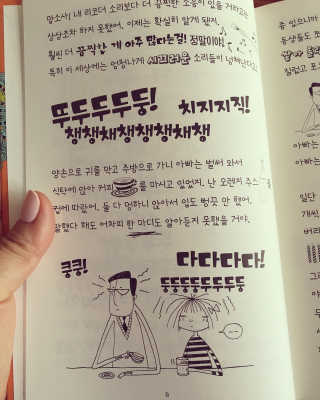 맙소사! 내 리코더 소리보다 더 끔찍한 소음이 있을 거라고는
상상조차 하지 못했어. 이제는 확실히 알게 됐지.
훨씬 더 끔찍한 게 아주 많다는걸! 정말이야.
특히 이 세상에는 엄청나게 시끄러운 소리들이 넘쳐난다고.
뚜두두두둥! 치지지직!
챙챙채챙챙챙채챙
양손으로 귀를 막고 주방으로 가니 아빠는 벌써 와서
식탁에 앉아 커피를 마시고 있었지. 난 오렌지 주스를
컵에 따랐어. 둘 다 멍하니 앉아서 입도 벙긋 안 했어.
말했다 해도 어차피 한 마디도 알아듣지 못했을 거야.
쿵쿵! 다다다다!
둥둥둥둥두두두둥
8
줄 있으니까
동생들도
끝나
칠렀고
아빠는
아빠는
일단
개씬
버리
그